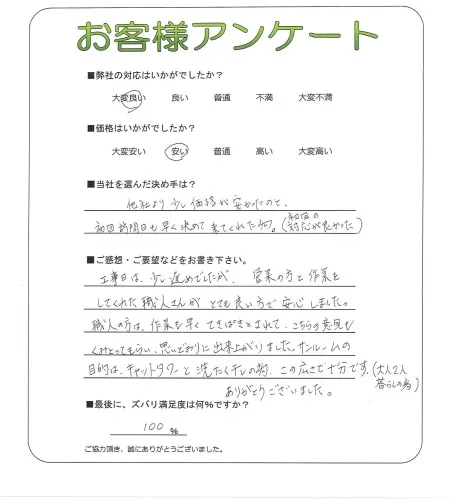 お客様アンケート
■弊社の対応はいかがでしたか？
大変良い 良い 普通 不満 大変不満
■価格はいかがでしたか？
大変安い 安い 普通 高い 大変高い
■当社を選んだ決め手は？
他社より少し価格が安かったのと、
初回訪問日も早く決めて来てくれた為。(初回の対応が良かった)
■ご感想・ご要望などをお書き下さい。
工事日は、少し遅めでしたが、営業の方と作業を
してくれた職人さんがとても良い方で安心しました。
職人の方は、作業も早くてきぱきとされて、こちらの意見も
くみとってもらい、思いどおりに出来上がりました。サンルームの
目的は、キャットタワーと洗たく干しの為、この広さで十分です。(大人2人暮らしの為)
ありがとうございました。
■最後に、ズバリ満足度は何%ですか？
100 %
ご協力頂き、誠にありがとうございました。